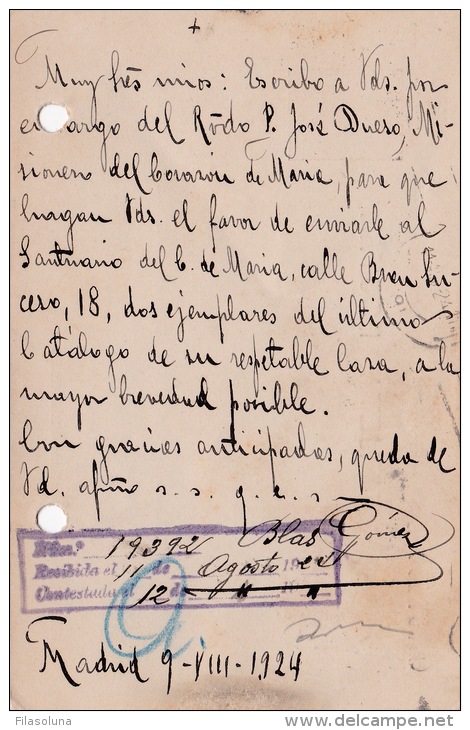 +
Muy Srés mios: Escribo a Vds. por
encargo del Rvdo P. José Dueso, Mi-
sionero del Corazón de Maria, para que
hagan Vds. el favor de enviarle al
Santuario del C. de Maria, calle Buen Su-
ceso, 18, dos ejemplares del último
Catálogo de su respetable Casa, a la
mayor brevedad posible.
Con gracias anticipadas, queda de
Vd. afmo s. s. q. e. s
Blas Gómez
Núm.º 19392
Recibida el 11 de Agosto 192
Contestada el 12 de " "
Madrid 9-VIII-1924
Filasoluna
delcampe.net